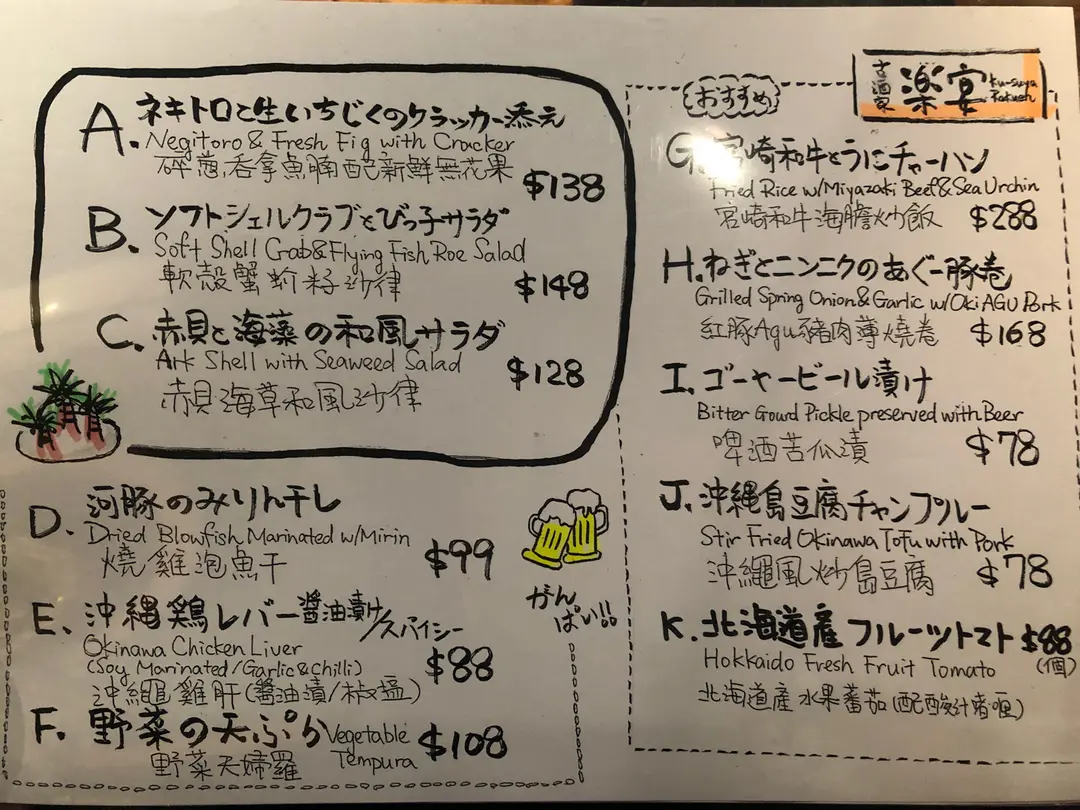 A. ネギトロと生いちじくのクラッカー添え
Negitoro & Fresh Fig with Cracker
碎葱吞拿魚腩配新鮮無花果 $138
B. ソフトシェルクラブとびっ子サラダ
Soft Shell Crab&Flying Fish Roe Salad
軟殼蟹魪籽沙律 $148
C. 赤貝と海藻の和風サラダ
Ark Shell with Seaweed Salad
赤貝海草和風沙律 $128
D. 河豚のみりん干し
Dried Blowfish Marinated w/Mirin
燒雞泡魚干 $99
がん
ぱい!!
E. 沖縄鶏レバー醤油漬け/スパイシー
Okinawa Chicken Liver
(Soy Marinated/Garlic&Chilli)
沖繩雞肝(醬油漬/椒塩) $88
F. 野菜の天ぷら Vegetable Tempura
野菜天婦羅 $108
古酒家 楽宴 Ku-suya Rakuen
おすすめ
G. 宮崎和牛とうにチャーハン
Fried Rice w/Miyazaki Beef&Sea Urchin
宮崎和牛海膽炒飯 $288
H. ねぎとニンニクのあぐー豚巻
Grilled Spring Onion&Garlic w/Oki AGU Pork
紅豚Agu豬肉薄燒卷 $168
I. ゴーヤービール漬け
Bitter Gourd Pickle preserved with Beer
啤酒苦瓜漬 $78
J. 沖縄島豆腐チャンプルー
Stir Fried Okinawa Tofu with Pork
沖繩風炒島豆腐 $78
K. 北海道産フルーツトマト $88
Hokkaido Fresh Fruit Tomato (個)
北海道產水果蕃茄(配酸汁啫喱)